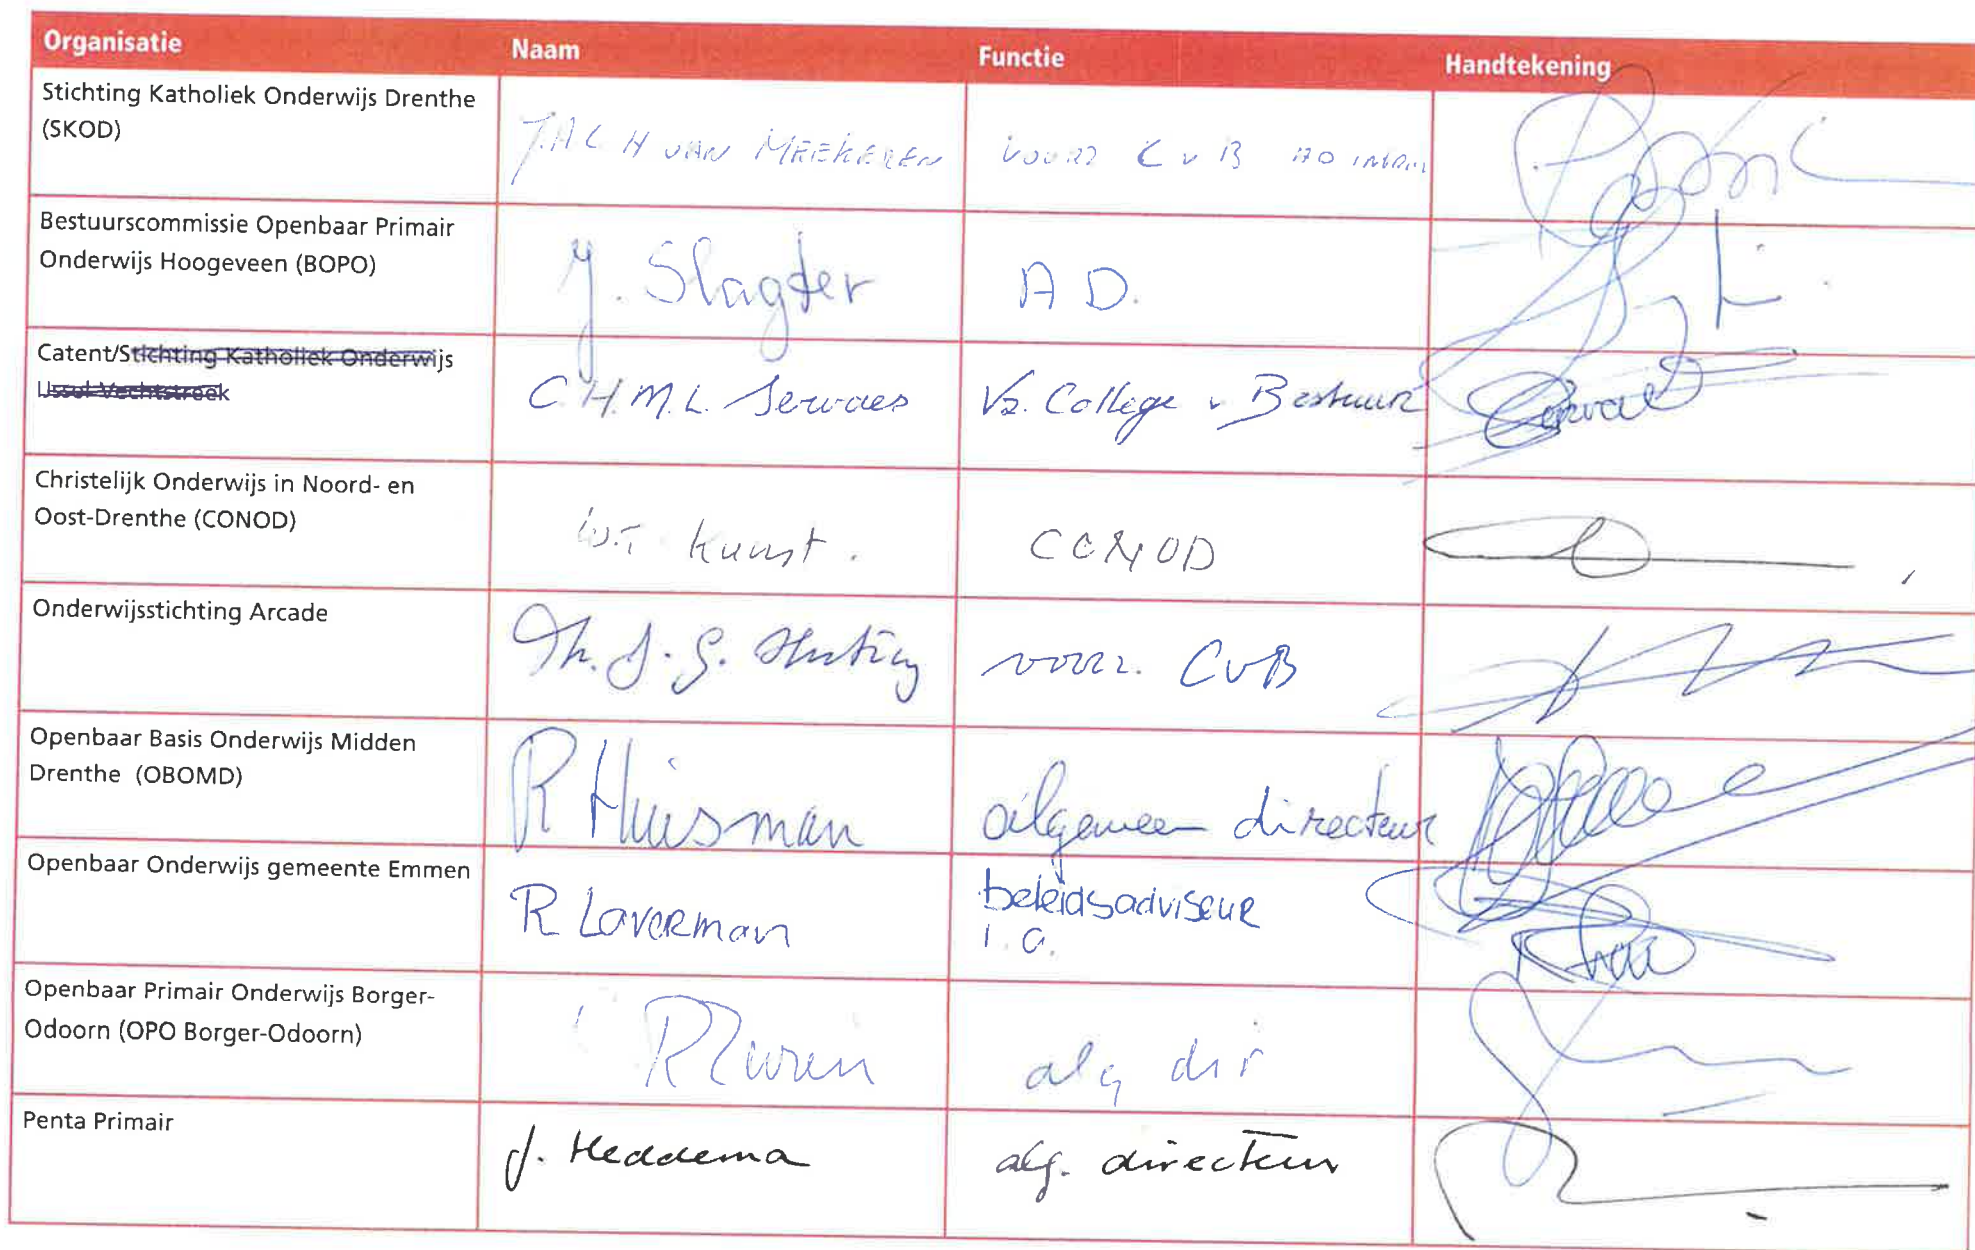 Organisatie Naam Functie Handtekening
Stichting Katholiek Onderwijs Drenthe
(SKOD)
J.A.C.H VAN MEEKEREN VOORZ C v B
Bestuurscommissie Openbaar Primair
Onderwijs Hoogeveen (BOPO)
J. Slagter A D.
Catent/Stichting Katholiek Onderwijs
IJssel-Vechtstreek
C.H.M.L. Servaes Vz. College v Bestuur
Christelijk Onderwijs in Noord- en
Oost-Drenthe (CONOD)
Kunst. CONOD
Onderwijsstichting Arcade
Th. J. G. voorz. CvB
Openbaar Basis Onderwijs Midden
Drenthe (OBOMD)
R Huisman algemeen directeur
Openbaar Onderwijs gemeente Emmen
R Laverman beleidsadviseur
i.o.
Openbaar Primair Onderwijs Borger-
Odoorn (OPO Borger-Odoorn)
R Zuren alg dir
Penta Primair
J. Heddema alg. directeur